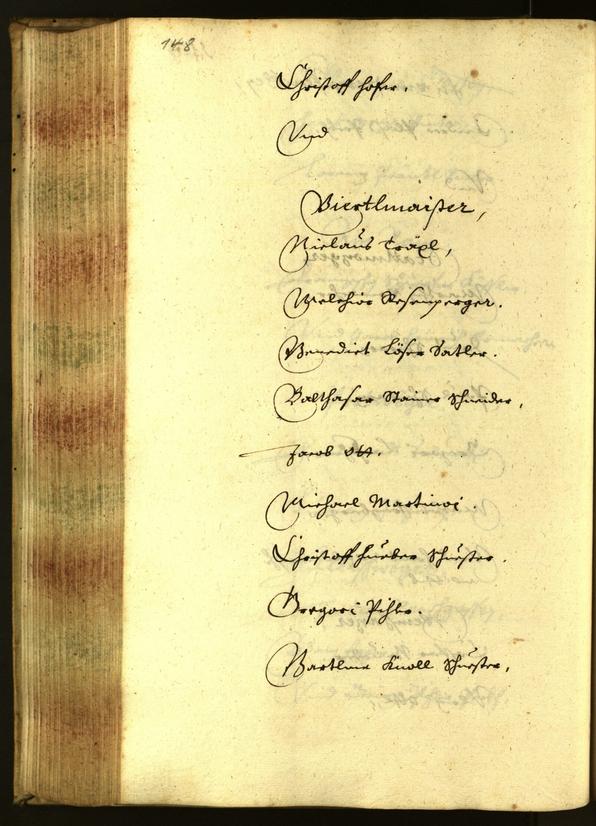 148
Christoff hofer.
Und
Viertlmaister,
Niclaus Träxl,
Melchior Rosenperger.
Benedict Löser Satler.
Balthasar Stainer Schneider,
Jacob Ott.
Michael Martinoi.
Christoff hueber Schuester.
Gregori Pihler.
Bartlme Knoll Schuester,